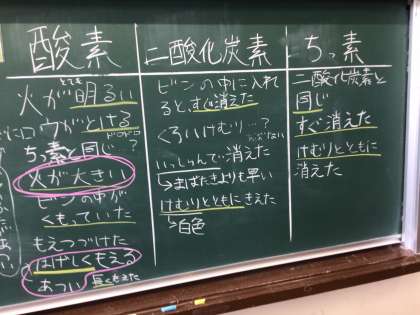 酸素
とても
火が明るい
ロウがとける
ドロドロ
ちっ素と同じ?
火が大きい
ビンの中が
くもっていた
もえつづけた
はげしくもえる
あつい
長くもえた
二酸化炭素
ビンの中に入れ
ると、すぐ消えた
くろいけむり…?
いっしゅんで消えた
→まばたきよりも早い
けむりとともにきえた
↳白色
ちっ素
二酸化炭素と
同じ
すぐ消えた
けむりとともに
消えた